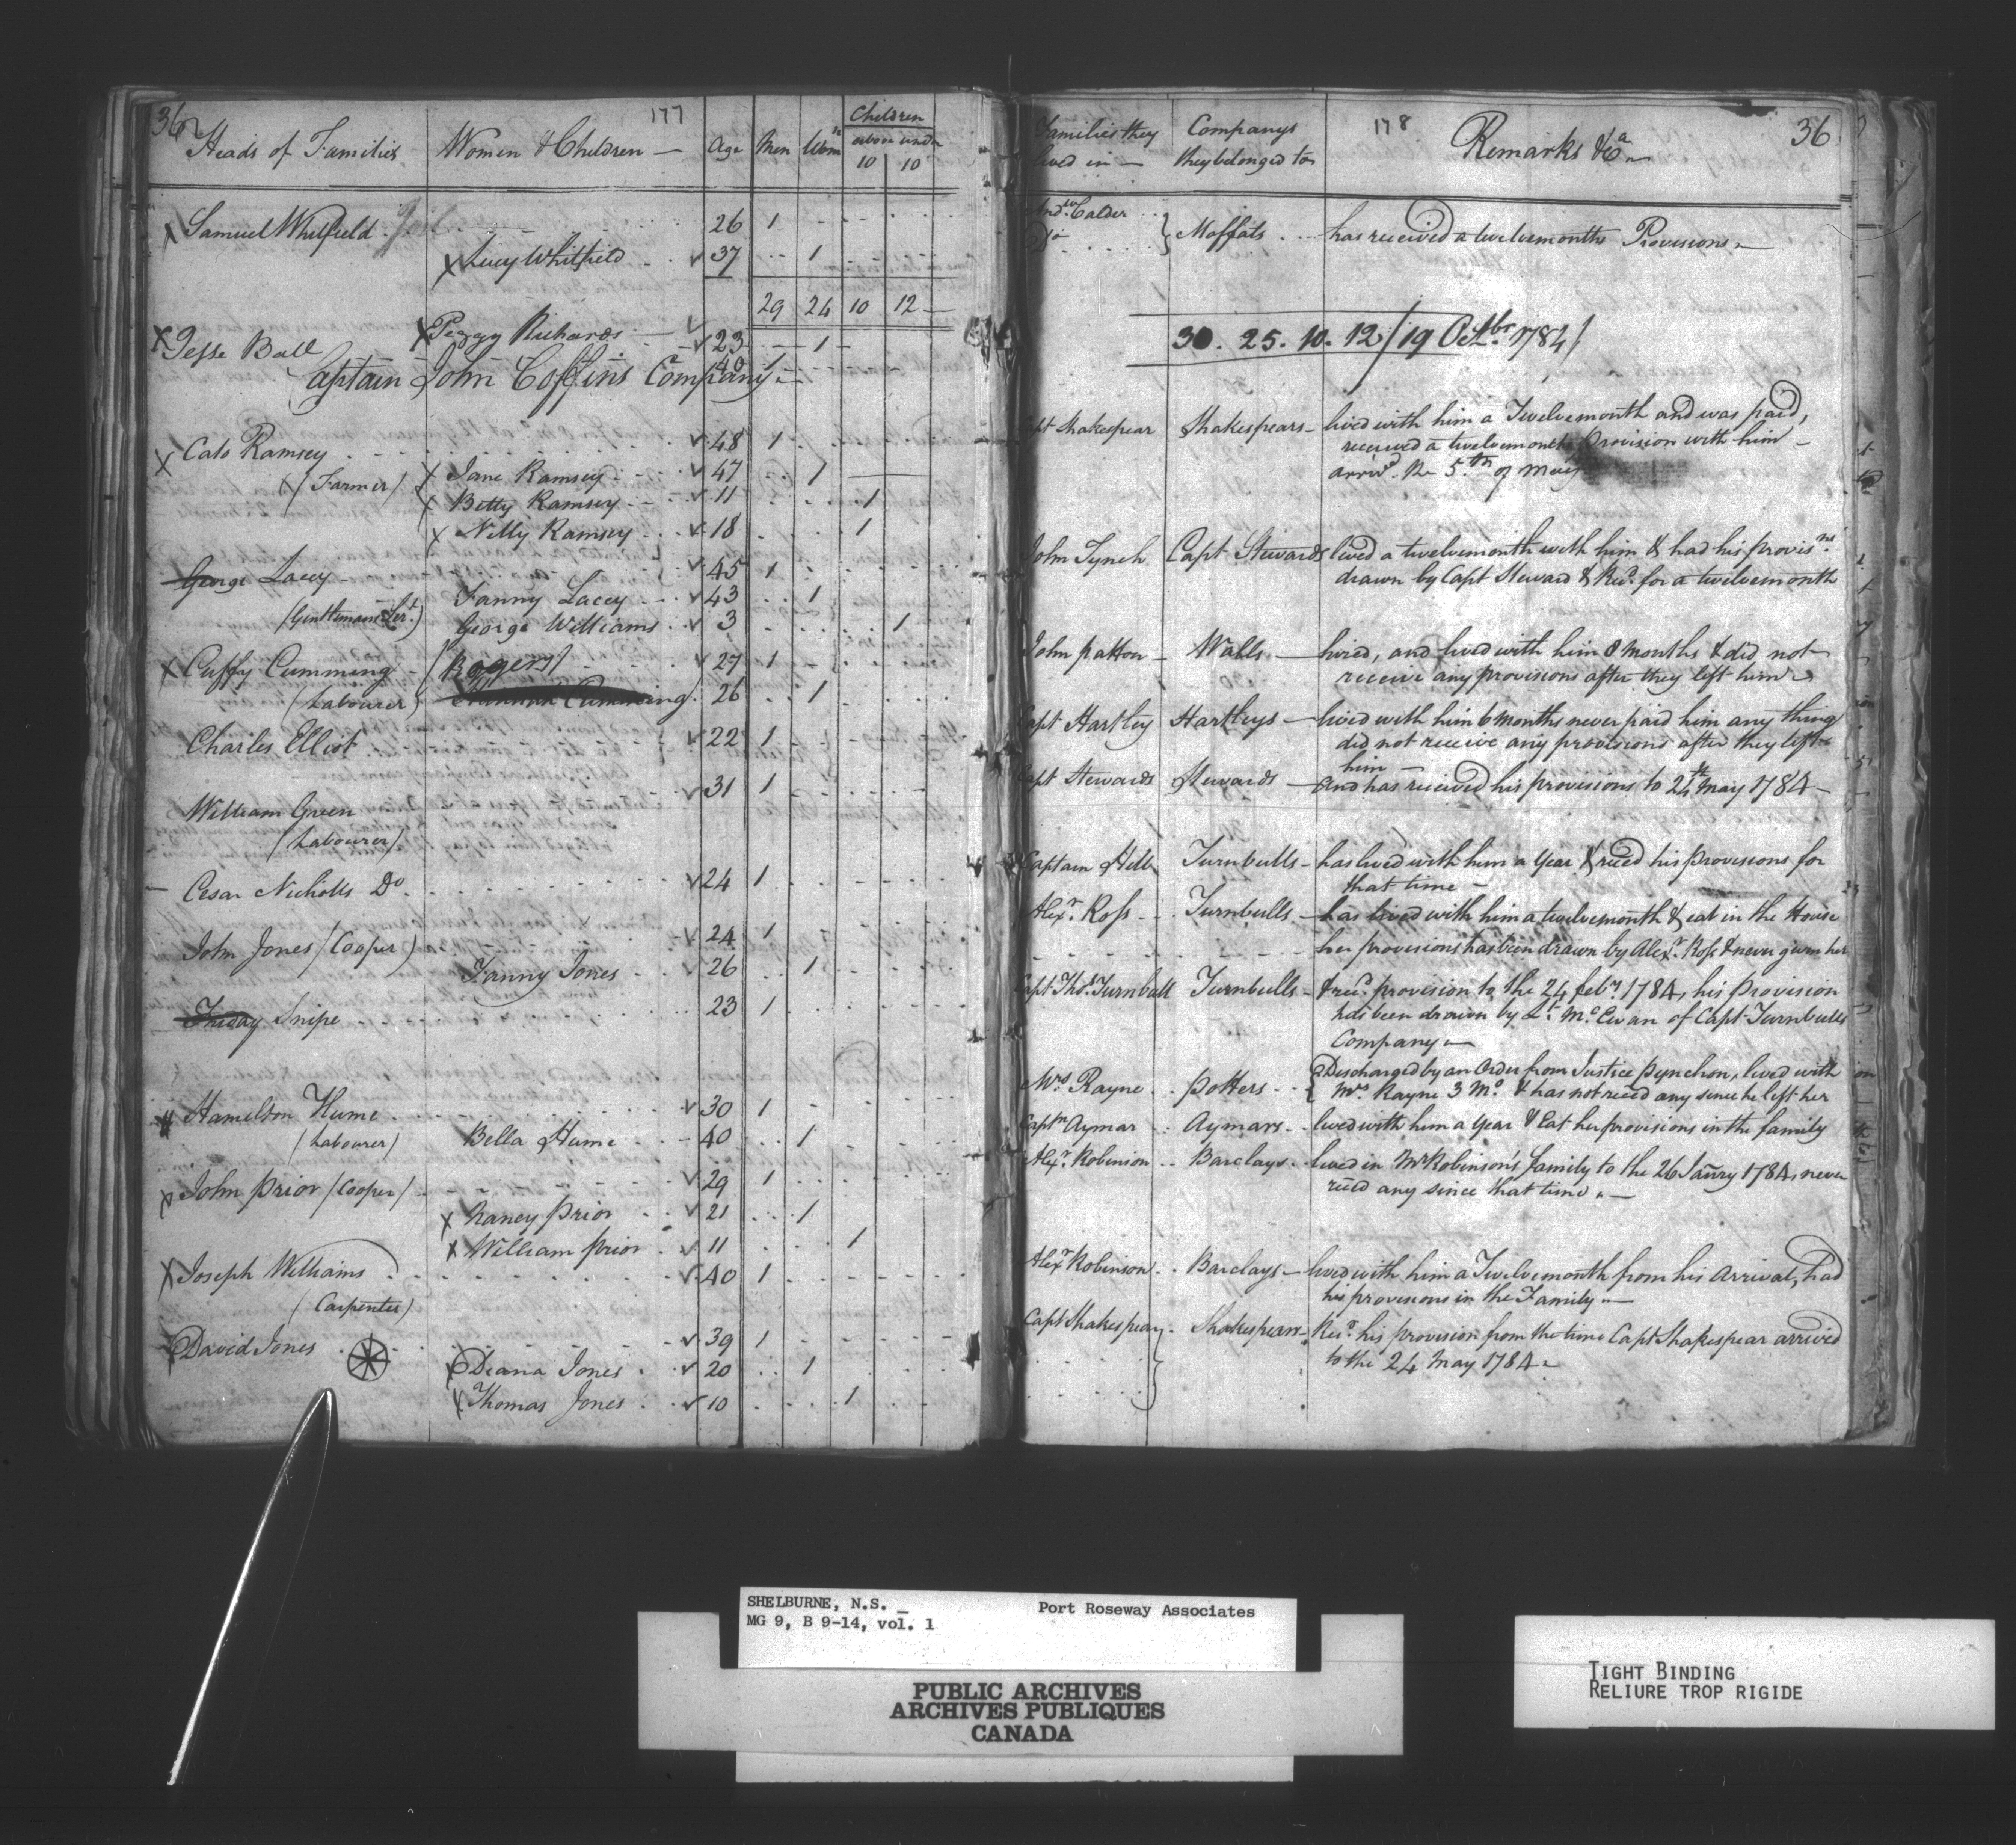 36 177
Heads of Families Women & Children — Age Men Wom.n Children
above under
10 10
Samuel Whitfield 26 1
Lucy Whitfield 37 1
29 24 10 12
Peggy Richards 23 1
Jesse Ball 40 1
Captain John Coffins Company
Cato Ramsey 48 1
(Farmer) Jane Ramsey 47 1
Betty Ramsey 11 1
Nelly Ramsey 18 1
George Lacey 45 1
(Gentlemans Ser.t) Fanny Lacey 43 1
George Williams 3 1
Cuffy Cumming (Rogers) 27 1
(Labourer) Hannah Cumming 26 1
Charles Elliot 22 1
31 1
William Green
(Labourer)
Cesar Nicholls D.o 24 1
John Jones (Cooper) 24 1
Fanny Jones 26 1
Friday Snipe 23 1
Hamelton Hume 30 1
(Labourer) Bella Hume 40 1
John Prior (Cooper) 29 1
Nancy Prior 21 1
William Prior 11 1
Joseph Williams 40 1
(Carpenter)
David Jones 39 1
Deana Jones 20 1
Thomas Jones 10 1
178 36
Families they lived in — Companys they belonged to Remarks &c.a
And.w Calder
D.o } Moffats has received a twelvemonths Provisions
30. 25. 10. 12 / 19 Oct.br 1784 /
Capt Shakespear Shakespears lived with him a Twelvemonth and was paid,
received a twelvemonth Provision with him
arriv.d the 5.th of May
John Tynch Capt Stewards lived a twelvemonth with him & had his provis.ns
drawn by Capt Steward & Rec.d for a twelvemonth
John Patton Walls hired, and lived with him 8 Months & did not
receive any provisions after they left him
Capt Hartley Hartleys lived with him 6 months never paid him any thing
did not receive any provisions after they left
him —
Capt Stewards Stewards and has received his provisions to 24th May 1784
Captain Hill Turnbulls has lived with him a Year & rec.d his provisions for
that time —
Alex.r Ross Turnbulls has lived with him a twelvemonth & eat in the House
her provisions has been drawn by Alex.r Ross & never given her
Capt Tho.s Turnbull Turnbulls & rec.d provision to the 24 feb.y 1784, his provision
has been drawn by L.t M.cEwan of Capt Turnbulls
Company
M.rs Rayne Potters { Discharged by an Order from Justice Pynchon, lived with
M.rs Rayne 3 M.o & has not rec.d any since he left her
Capt.n Aymar Aymars lived with him a Year & Eat her provisions in the family
Alex.r Robinson Barclays lived in M.r Robinson's family to the 26 Janry 1784, never
rec.d any since that time
Alex.r Robinson Barclays lived with him a Twelvemonth from his Arrival, had
his provisions in the Family
Capt Shakespear Shakespears Rec.d his provision from the time Capt Shakespear arrived
to the 24 May 1784
SHELBURNE, N.S. _ Port Roseway Associates
MG 9, B 9-14, vol. 1
PUBLIC ARCHIVES
ARCHIVES PUBLIQUES
CANADA
TIGHT BINDING
RELIURE TROP RIGIDE